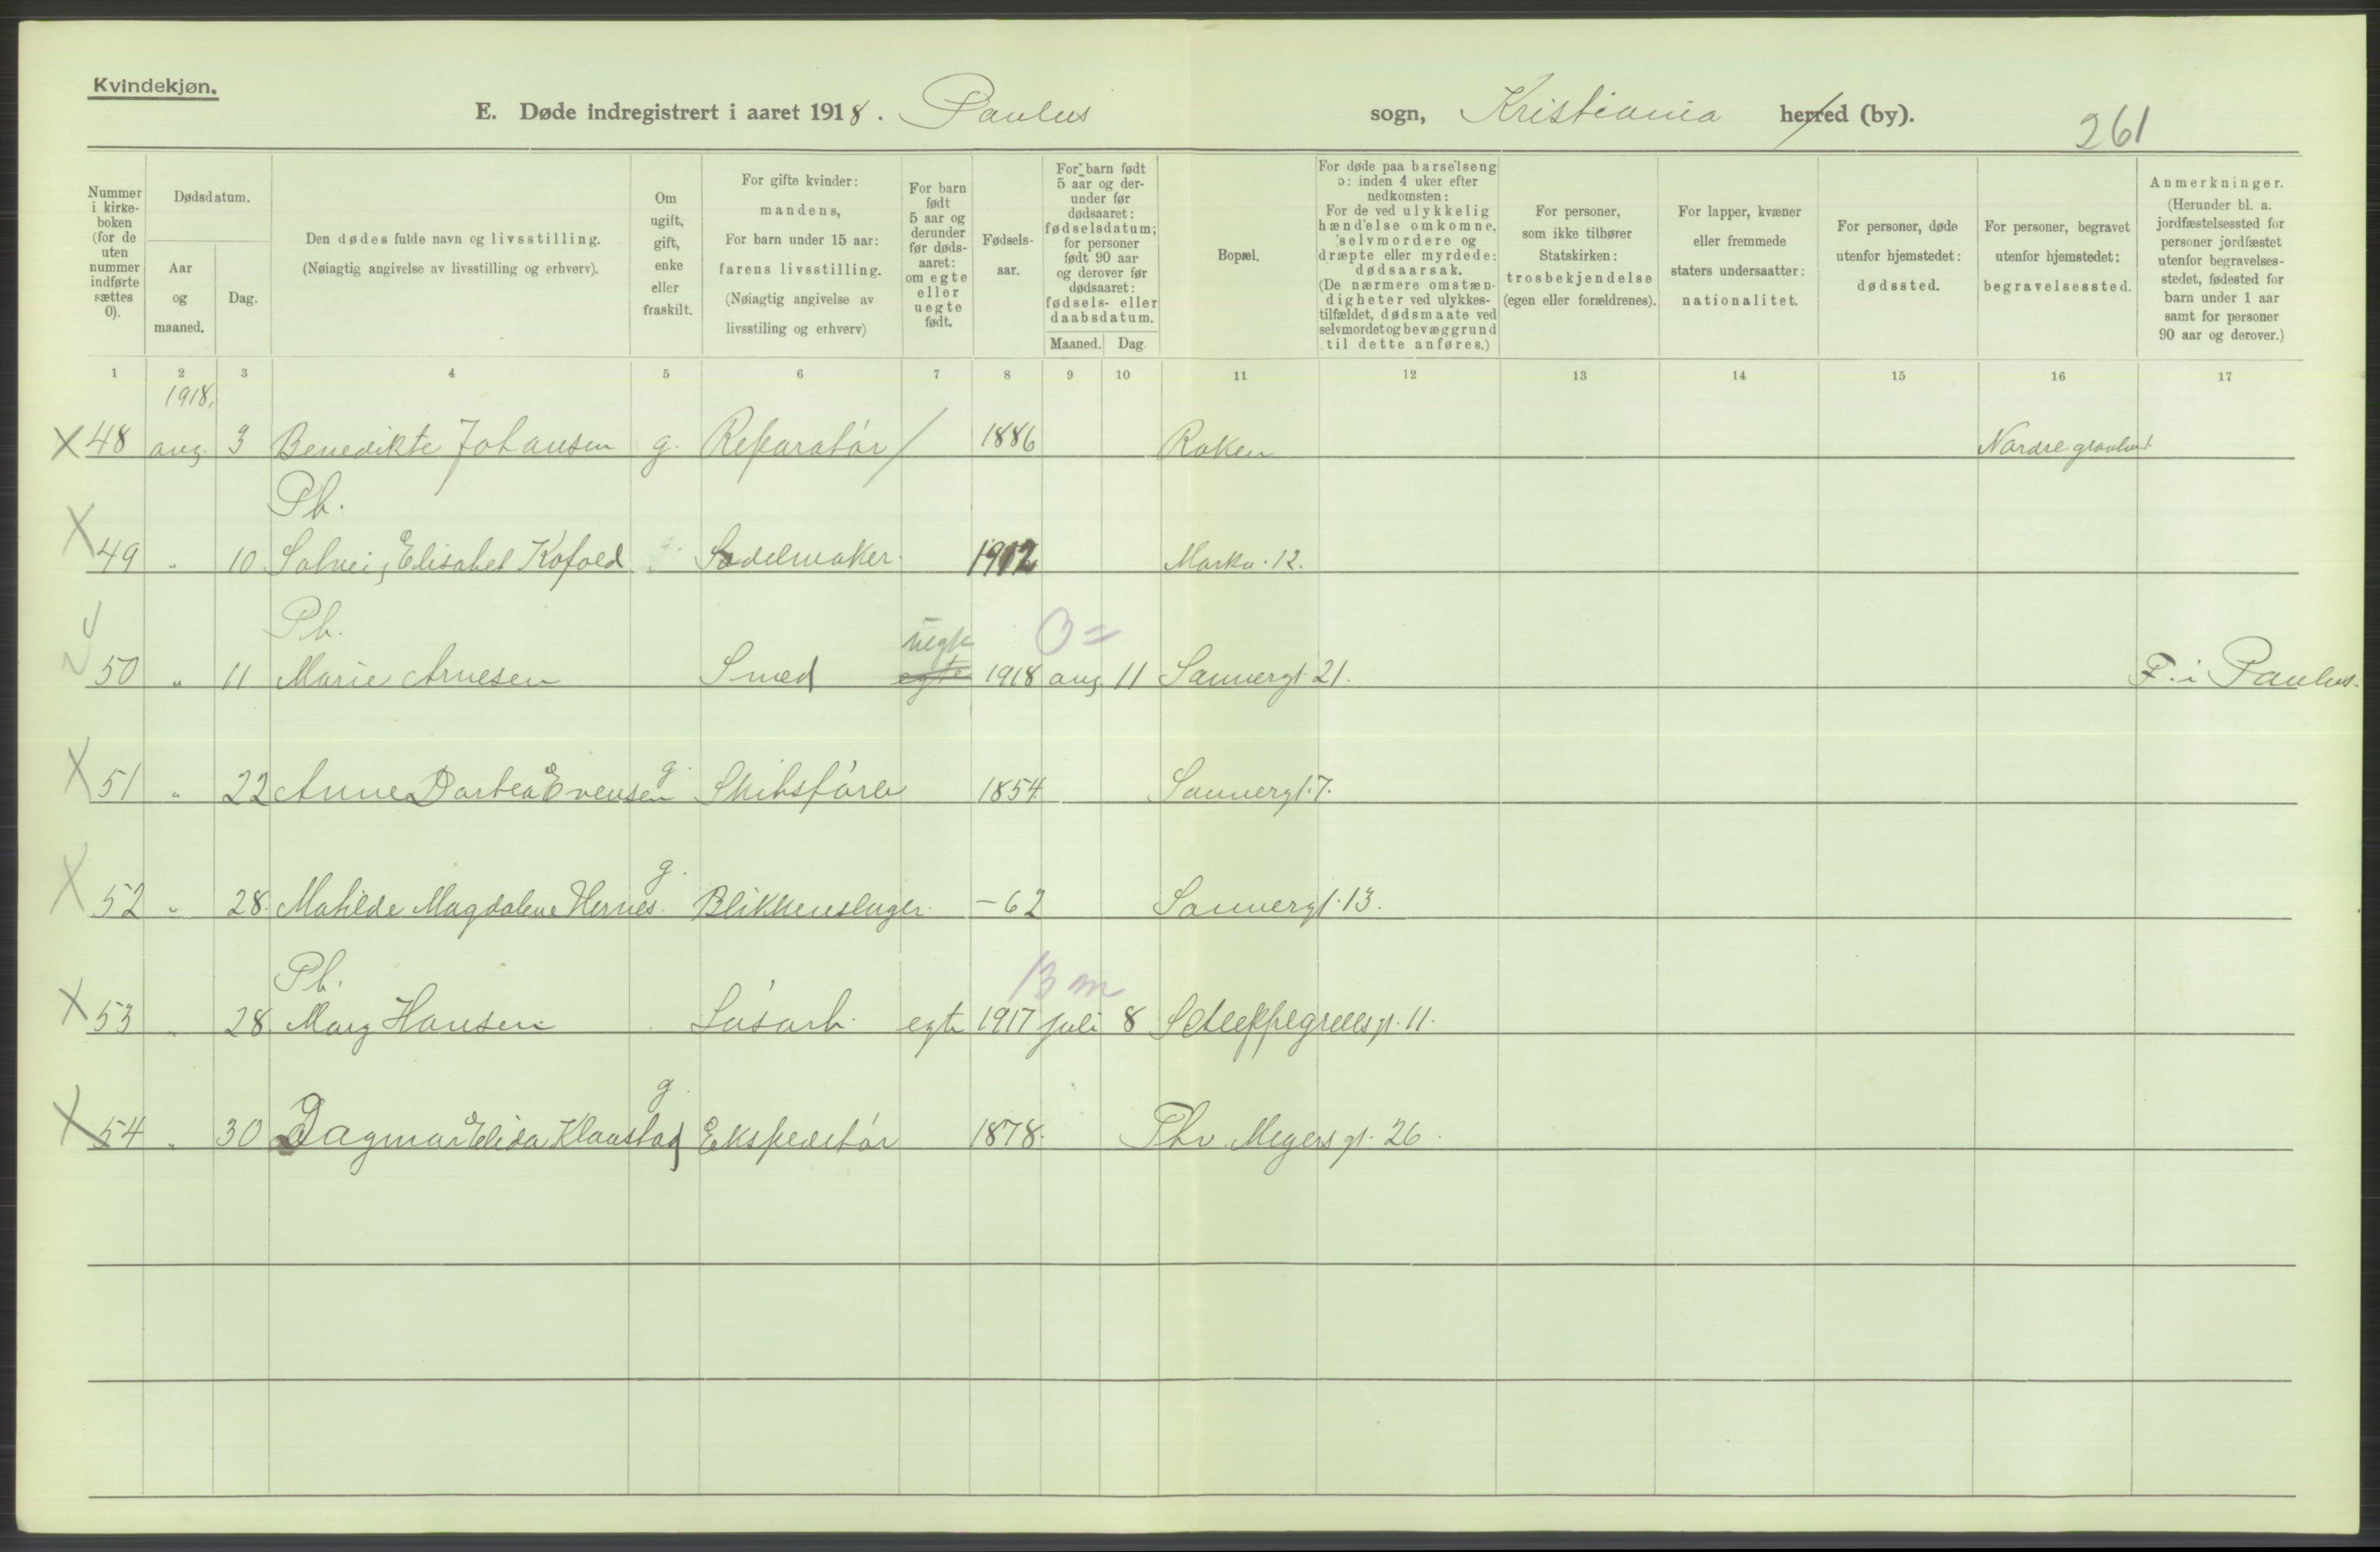 Kvindekjøn.
E. Døde indregistrert i aaret 1918. Paulus sogn, Kristiania herred (by). 261
Nummer i kirkeboken (for de uten nummer indførte sættes 0).
Dødsdatum.
Aar og maaned.
Dag.
Den dødes fulde navn og livsstilling.
(Nøiagtig angivelse av livsstilling og erhverv).
Om ugift, gift, enke eller fraskilt.
For gifte kvinder: mandens,
For barn under 15 aar: farens livsstilling.
(Nøiagtig angivelse av livsstiling og erhverv)
For barn født 5 aar og derunder før dødsaaret: om egte eller uegte født.
Fødselsaar.
For barn født 5 aar og derunder før dødsaaret: fødselsdatum; for personer født 90 aar og derover før dødsaaret: fødsels- eller daabsdatum.
Maaned. Dag.
Bopæl.
For døde paa barselseng ɔ: inden 4 uker efter nedkomsten:
For de ved ulykkelig hændelse omkomne, selvmordere og dræpte eller myrdede: dødsaarsak.
(De nærmere omstændigheter ved ulykkestilfældet, dødsmaate ved selvmordet og bevæggrund til dette anføres.)
For personer, som ikke tilhører Statskirken: trosbekjendelse (egen eller forældrenes).
For lapper, kvæner eller fremmede staters undersaatter: nationalitet.
For personer, døde utenfor hjemstedet: dødssted.
For personer, begravet utenfor hjemstedet: begravelsessted.
Anmerkninger.
(Herunder bl. a. jordfæstelsessted for personer jordfæstet utenfor begravelsesstedet, fødested for barn under 1 aar samt for personer 90 aar og derover.)
1 2 3 4 5 6 7 8 9 10 11 12 13 14 15 16 17
1918.
X 48 aug. 3 Benedikte Johansen g. Reparatør / 1886 Roken Nordre gravlund
Pb.
X 49 " 10 Solveig Elisabet Kofoed Sadelmaker 1912 Markv. 12.
Pb. uegte 0 =
50 " 11 Marie Arnesen Smed egte 1918 aug 11 Sannergt. 21. F. i Paulus.
X 51 " 22 Anne Dortea Evensen g. Skibsfører 1854 Sannergt. 7.
X 52 " 28. Matilde Magdalene Hernes. g. Blikkenslager. -62 Sannergt. 13.
Pb. 13 m
X 53 " 28 Mary Hansen Løsarb. egte 1917 juli 8 Schleppegrellsgt. 11.
X 54 " 30 Dagmar Elida Klaustad g. Ekspeditør 1878. Thv. Meyers gt. 26.